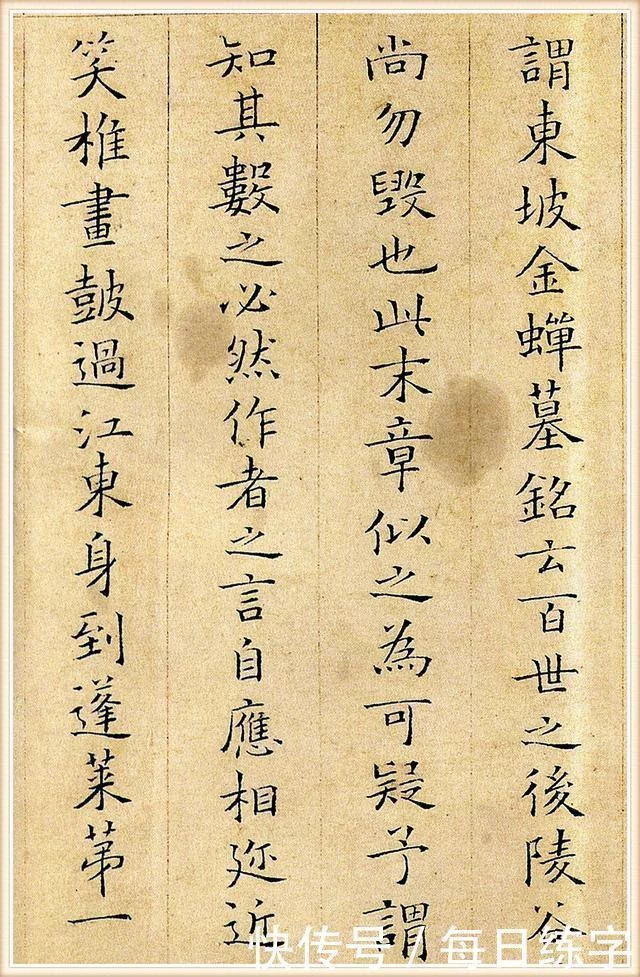 謂東坡金蟬墓銘云百世之後陵谷
尚勿毀也此末章似之為可疑予謂
知其數之必然作者之言自應相迩近
笑椎畫鼓過江東身到蓬萊第一
快传号/每日练字